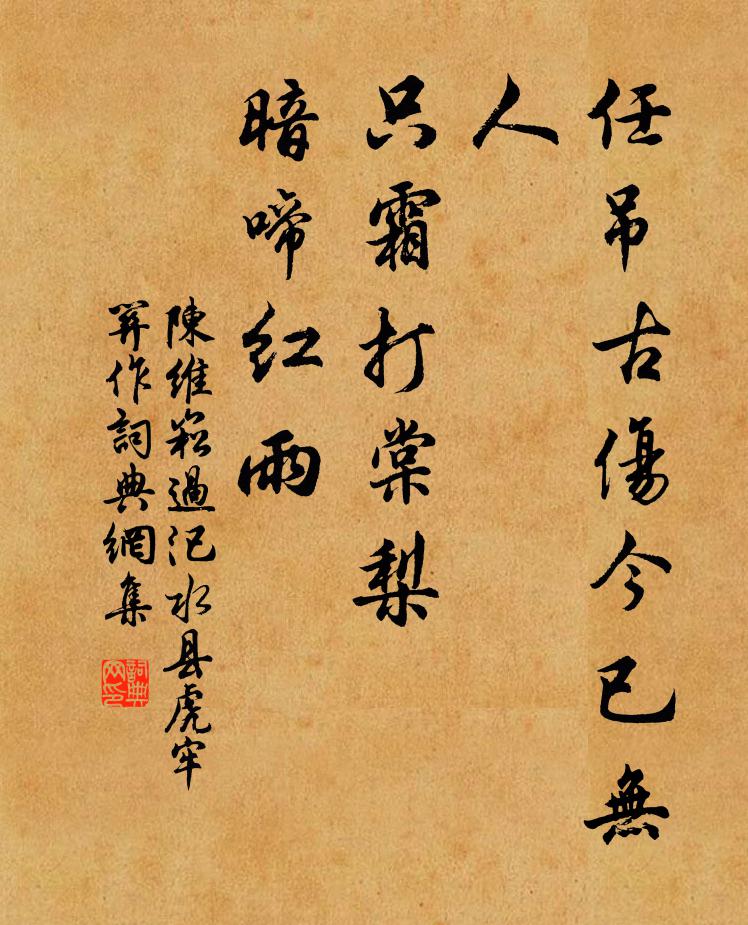 任吊古傷今已無
人
只霜打棠梨
暗啼紅雨
陳維崧過汜水县虎牢
關作詞典網集
詞典
网印